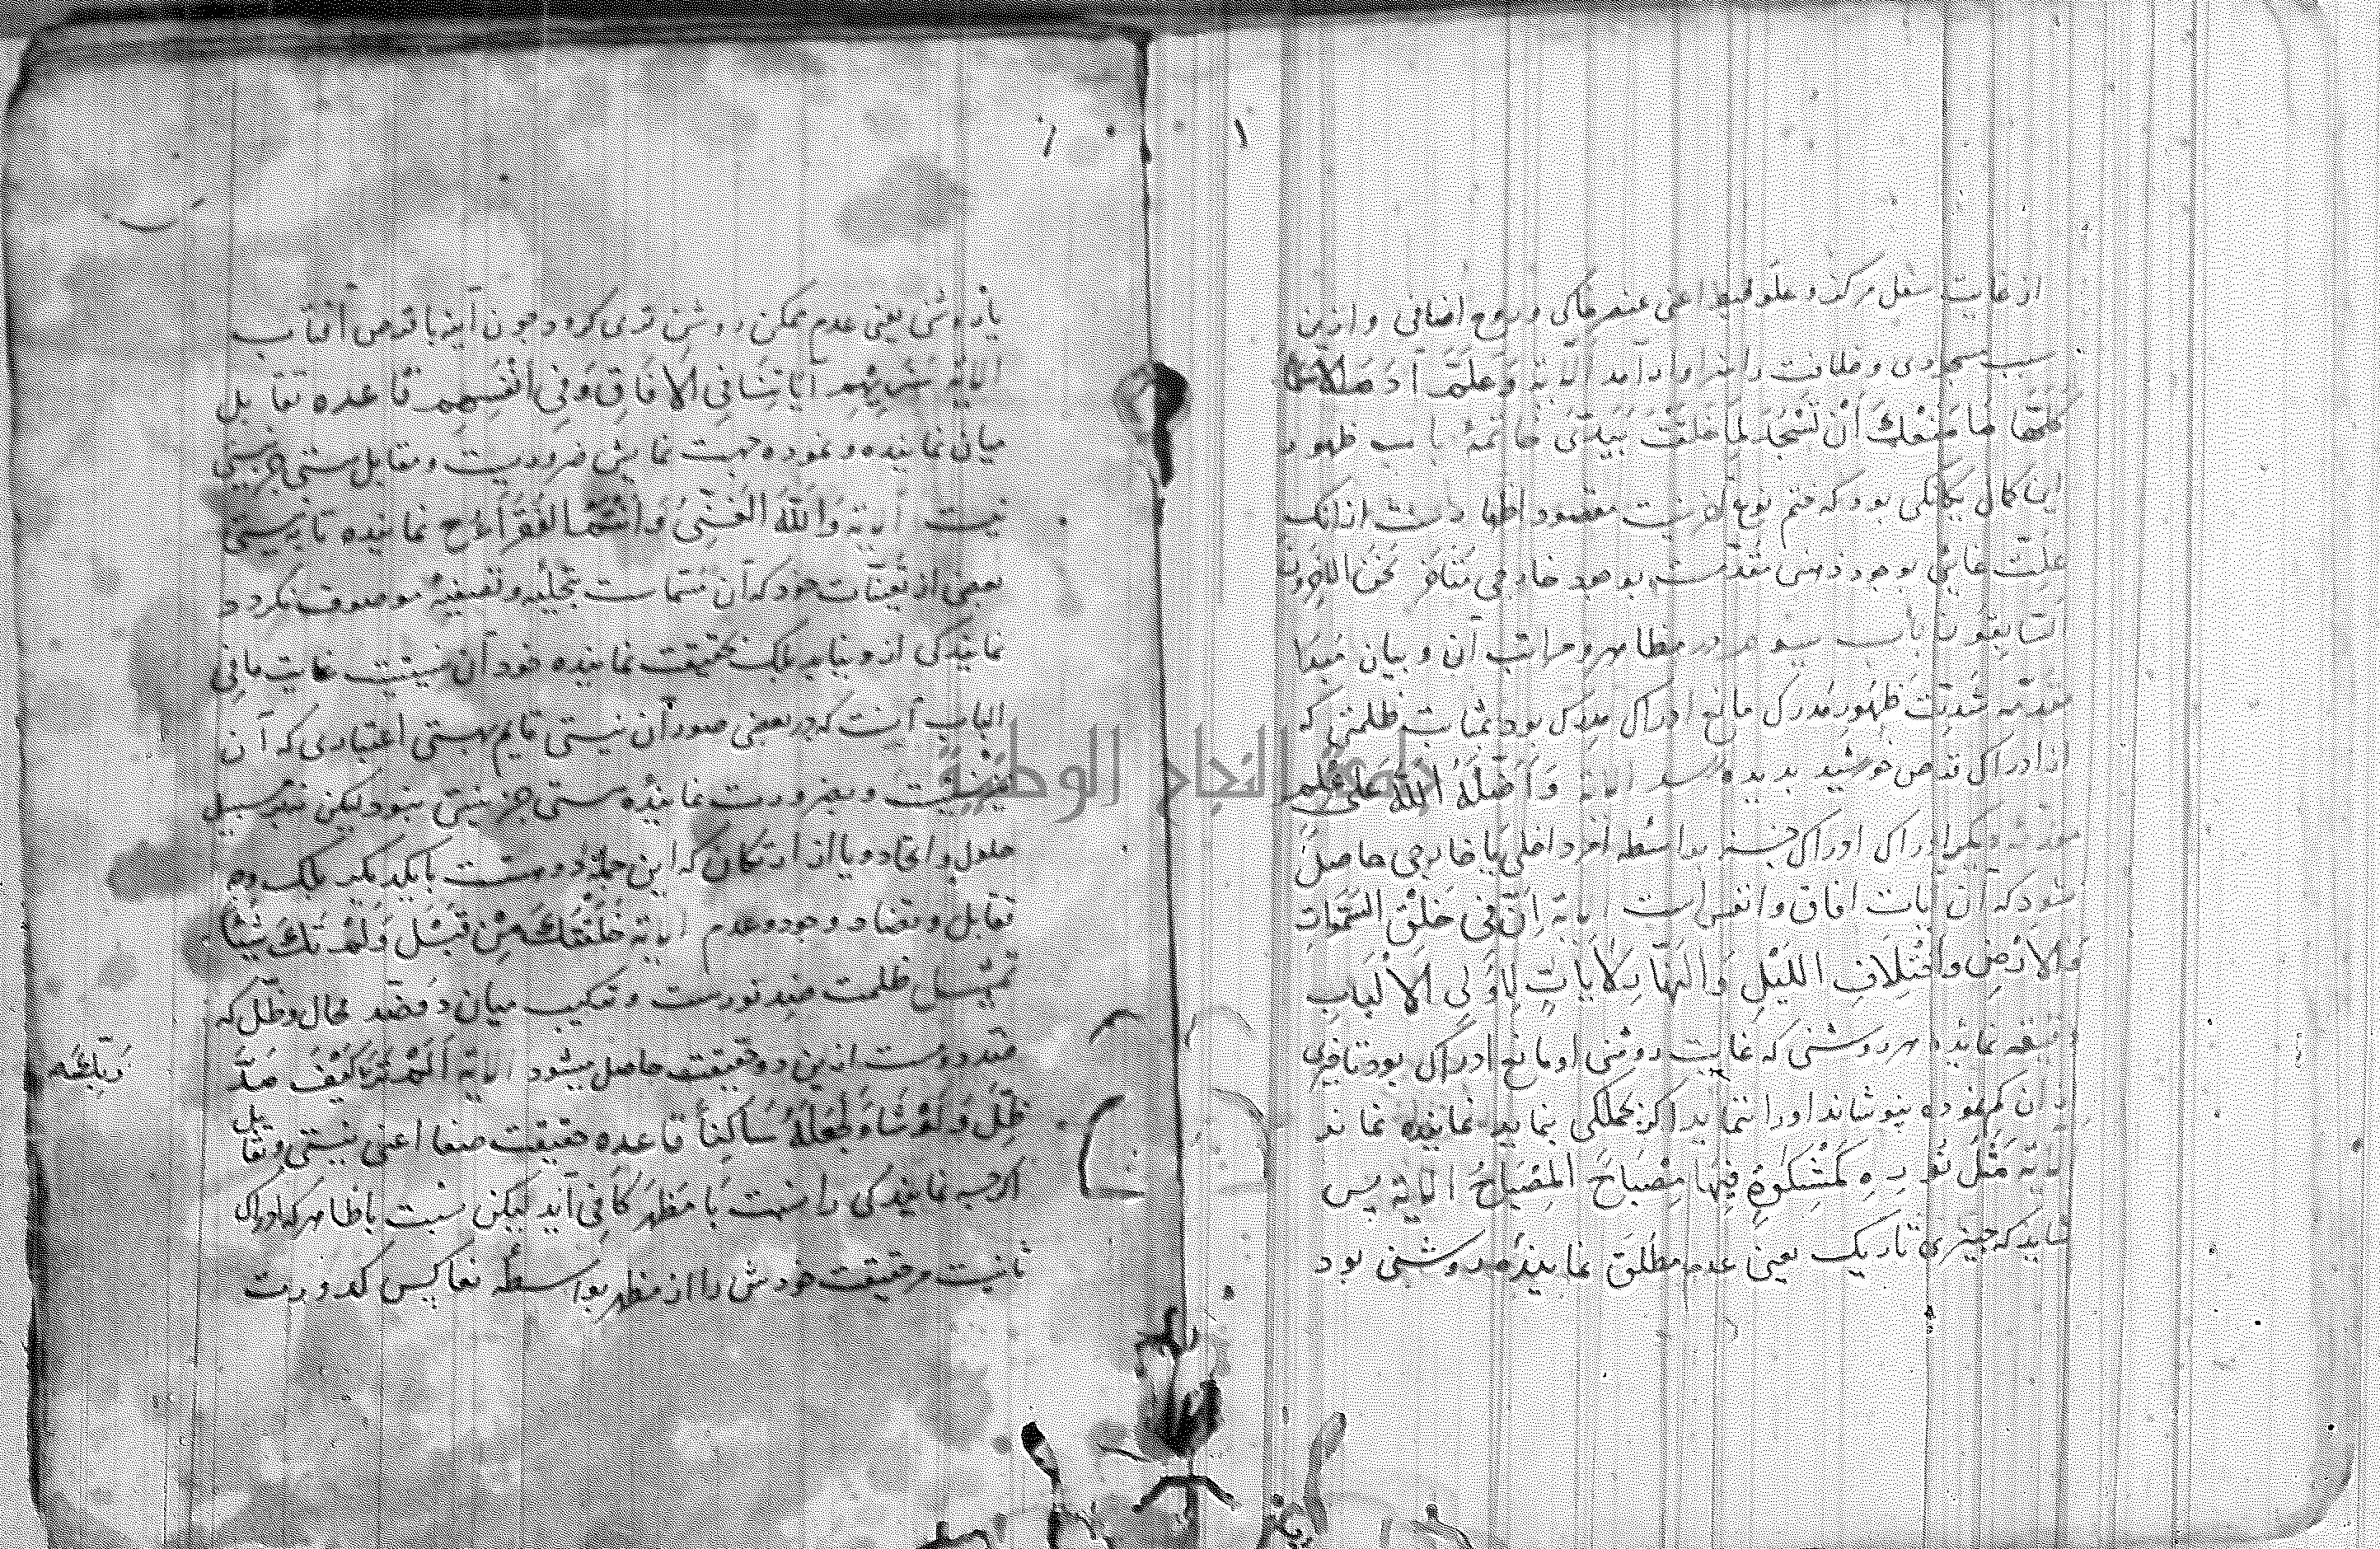 از غایت سفل مرکز و علو محیط اعنی عنصر خاکی و روح اضافی و ازین
سبب مسجودی و خلافت را سزاوار آمد الآیة وَعَلَّمَ آدَمَ الْاَسْمَاءَ
كُلَّهَا مَا مَنَعَكَ اَنْ تَسْجُدَ لِمَا خَلَقْتُ بِيَدَيَّ خاتمهٔ باب ظهور
این کمال یکانکی بود که ختم نوع آفرینش مقصود اظهار انک
علّت غائی بوجود ذهنی متقدمست و بوجود خارجی متأخر نَحْنُ الْآخِرُونَ
السَّابِقُونَ باب سیوم در مظاهر و مراتب آن و بیان مبدا
مقدّمه شدّت ظهور مُدرَک مانع ادراک مدرک بود بمثابت ظلمتی که
از ادراک قرص خورشید بدیده رسد الآیة وَاَضَلَّهُ اللّٰهُ عَلٰی عِلْمٍ
مقدّمه دیکر ادراک ادراک چیز بواسطه امر داخلی یا خارجی حاصل
شود که آن آیات آفاق و انفس است الآیة اِنَّ فِی خَلْقِ السَّمٰوَاتِ
وَالْاَرْضِ وَاخْتِلَافِ اللَّيْلِ وَالنَّهَارِ لَآيَاتٍ لِاُولِی الْاَلْبَابِ
نماینده هر روشنی که غایت روشنی او مانع ادراک بود تا قدری
از آن که نموده بپوشاند او را ننماید اکر بکلّی بنماید نماینده نماند
الآیة مَثَلُ نُورِهِ كَمِشْكٰوةٍ فِيهَا مِصْبَاحٌ الْمِصْبَاحُ الآیة پس
شاید که چیزی تاریک یعنی عدم مطلق نمایندهٔ هر روشنی بود
یا روشنی یعنی عدم ممکن روشن تری کردد چون آینه با قرص آفتاب
الآیة سَنُرِيهِمْ آيَاتِنَا فِی الْآفَاقِ وَفِی اَنْفُسِهِمْ قاعده تقابل
میان نماینده و نموده جهت نمایش ضروریست و مقابل هستی جز نیستی
نیست الآیة وَاللّٰهُ الْغَنِیُّ وَاَنْتُمُ الْفُقَرَاءُ نماینده تا به نیستی
بعضی از تعیّنات خود که آن متممات تجلیه و تصفیه موصوف نکردد
نمایندکی ازو نیاید بلک بحقیقت نماینده خود آن نیستیست غایت ما فی
الباب آنست که در بعضی صور آن نیستی قایم بهستی اعتباری که آن
نیز نیست و بضرورت نمایندهٔ هستی جز نیستی نبود لیکن نه بر سبیل
حلول و اتحاد و یا از ارتکان که این جمله دوست با یکدیکر بلک وجه
تقابل و تضاد وجود و عدم الآیة خَلَقْتُكَ مِنْ قَبْلُ وَلَمْ تَكُ شَيْئًا
تمثیل ظلمت ضد نورست و ترکیب میان دو ضد محال و ظل که
ضد دوست ازین دو حقیقت حاصل میشود الآیة اَلَمْ تَرَ كَيْفَ مَدَّ
الظِّلَّ وَلَوْ شَاءَ لَجَعَلَهُ سَاكِنًا قاعده حقیقت صفا اعنی نیستی و تقابل
اکرچه نمایندکی را نسبت با مظهر کافی آید لیکن نسبت با ظاهر که ادراک
ثانیت مر حقیقت خودش را از مظهر بواسطهٔ تعاکس کدورت
جامعة النجاح الوطنية